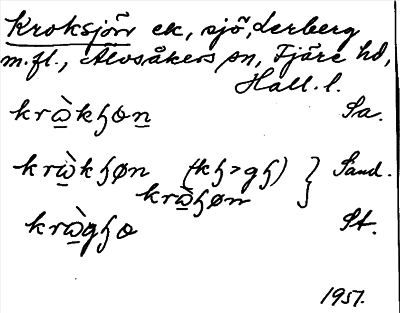 Kroksjön ek, sjö, Lerberg
m.fl., Älvsåkers sn, Fjäre hd,
Hall. l.
krὼkɧɵn Sa.
krὼkɧøn (kɧ>gɧ) } Sand.
krὼɧøn
krὼgɧɵ St.
1951.